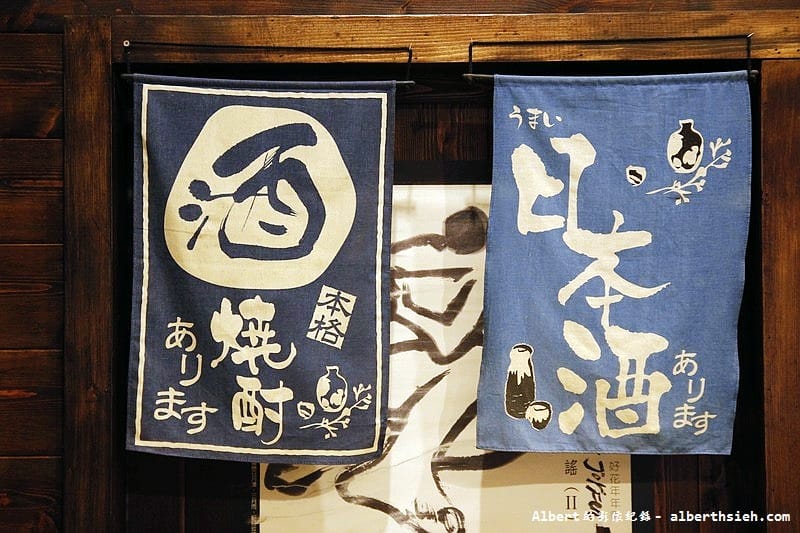 酒
本格
焼酎
あります
うまい
日本酒
あります
好花年年
謠(II)
Albert的影像紀錄 - alberthsieh.com